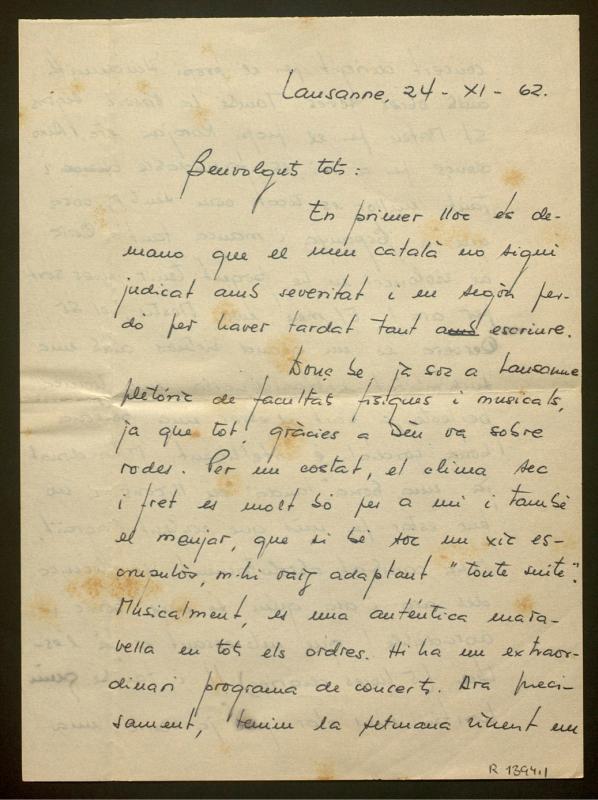 Lausanne, 24 - XI - 62.
Benvolguts tots:
En primer lloc és de-
mano que el meu català no sigui
judicat amb severitat i en segòn per-
dó per haver tardat tant amb escriure.
Donç be, ja soc a Lausanne
pletóric de facultats fisiques i musicals,
ja que tot, gràcies a Dèu va sobre
rodes. Per un costat, el clima sec
i fret es molt bó per a mi i també
el menjar, que si bé soc un xic es-
crupulòs, m-hi vaig adaptant "toute suite".
Musicalment, es una auténtica mara-
vella en tots els ordres. Hi ha un extraor-
dinari programa de concerts. Ara preci-
sament, tenim la setmana vinent un
R 1394.1